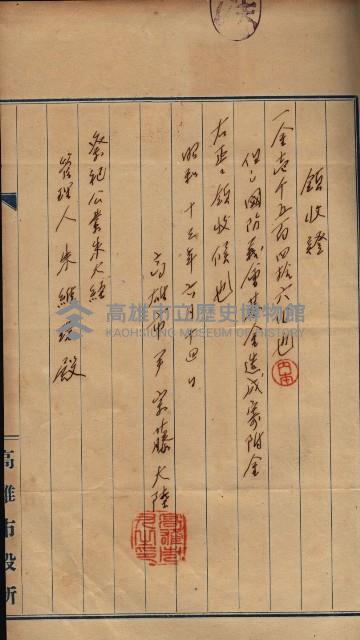 領收證
一金壹千五百四拾六円也
但シ國防義會基金造成寄附金
右正ニ領收候也
昭和十三年六月十四日
高雄市尹宗藤大陸
祭祀公業朱天經
管理人朱維
殿
高雄市役所
高雄市立歷史博物館
KAOHSIUNG MUSEUM OF HISTORY